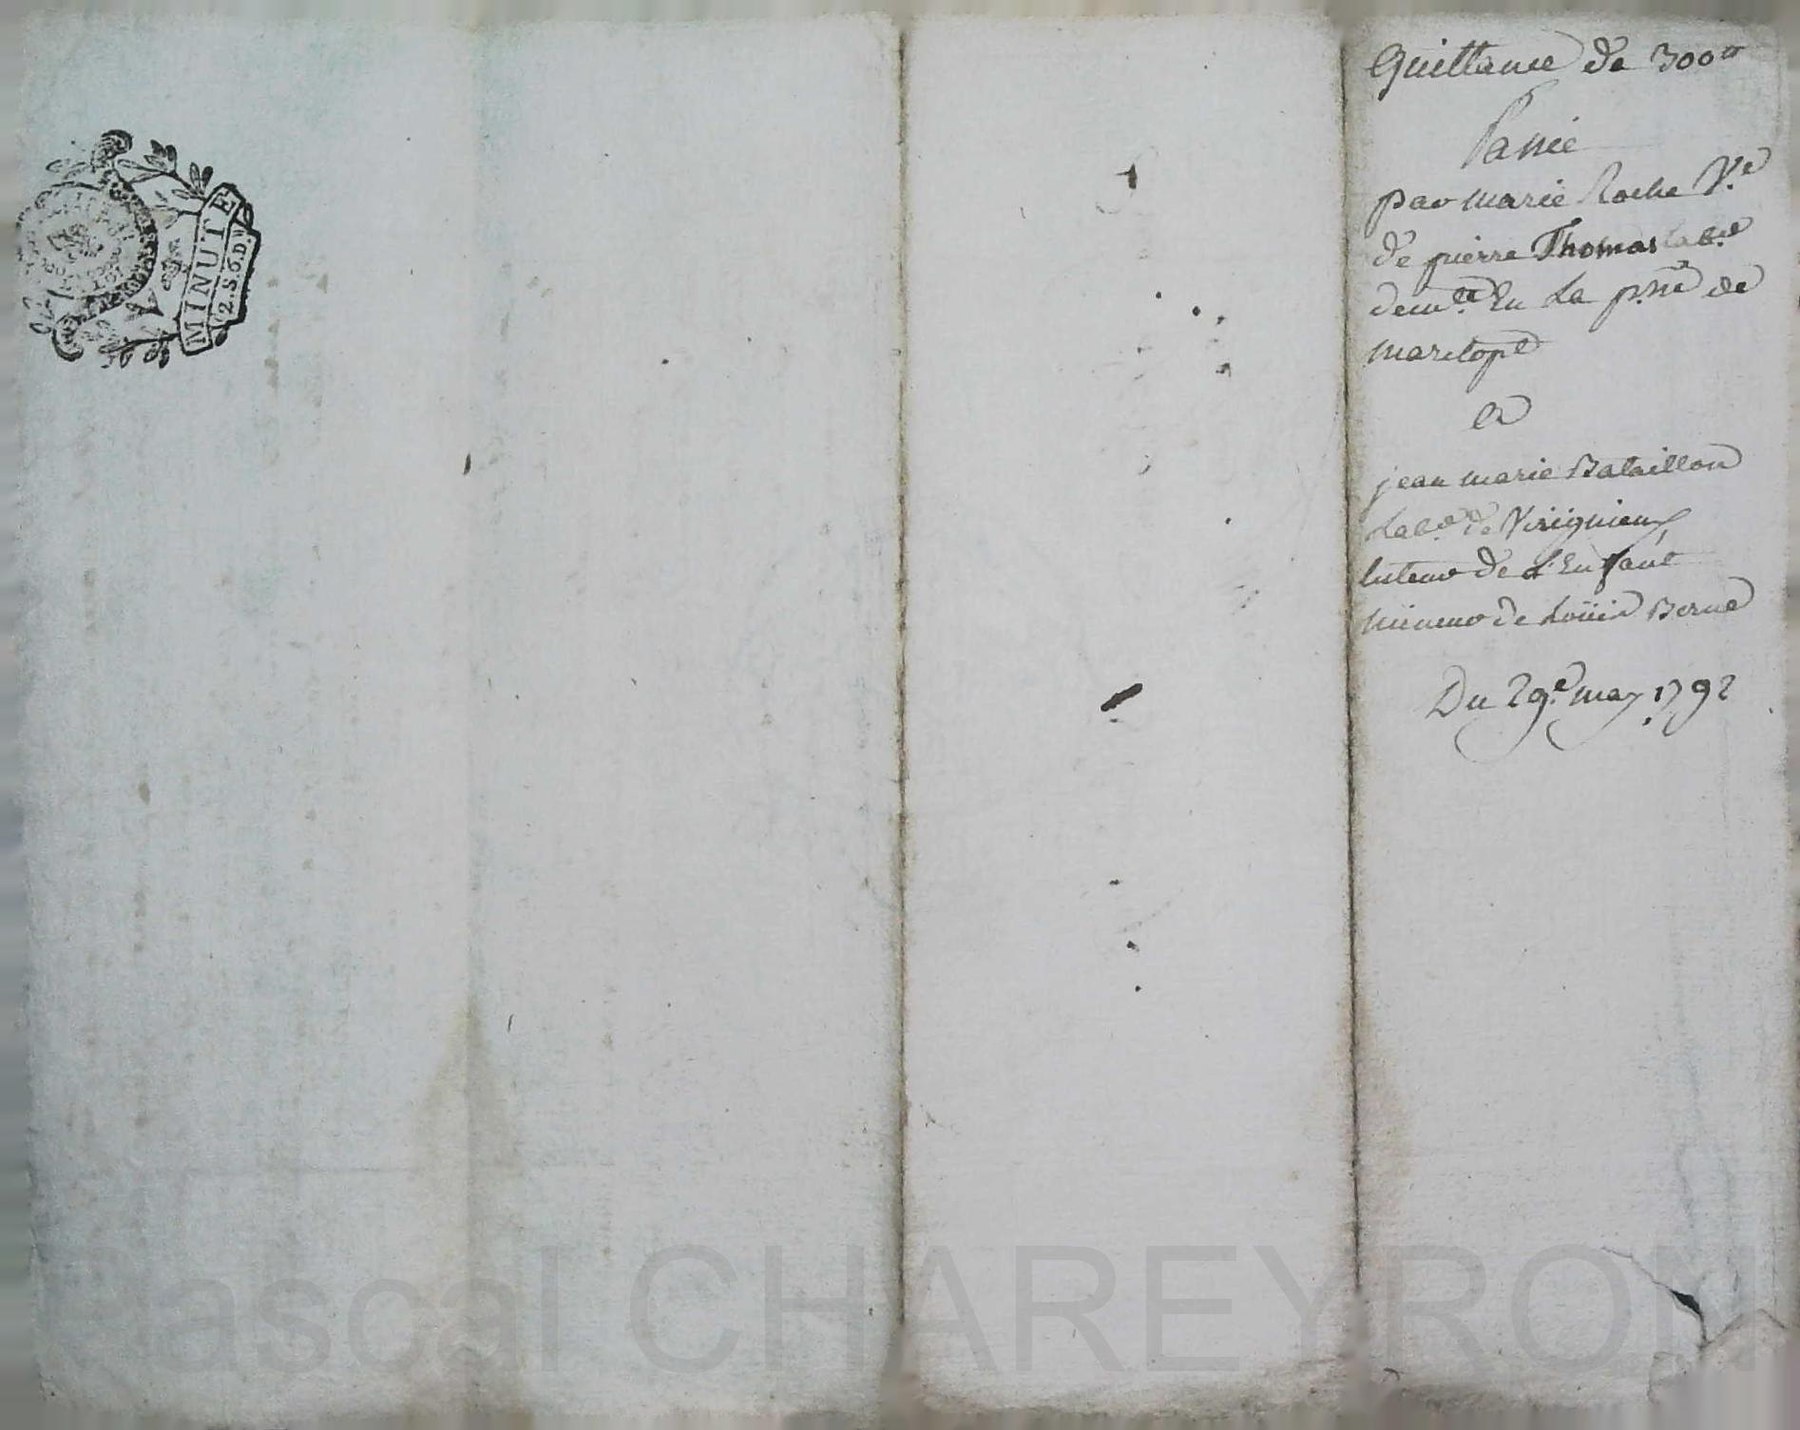 MINUTE
2.S.6.D.rs
Quittance de 300tt
Passée
par marie Roche Ve
de pierre Thomas labr
demte En La psse de
marclopt
et
jean marie Bataillon
Labr de Virignieux
tuteur de L'Enfant
mineur de Loüis Berne
Du 29e may 1792
Pascal CHAREYRON